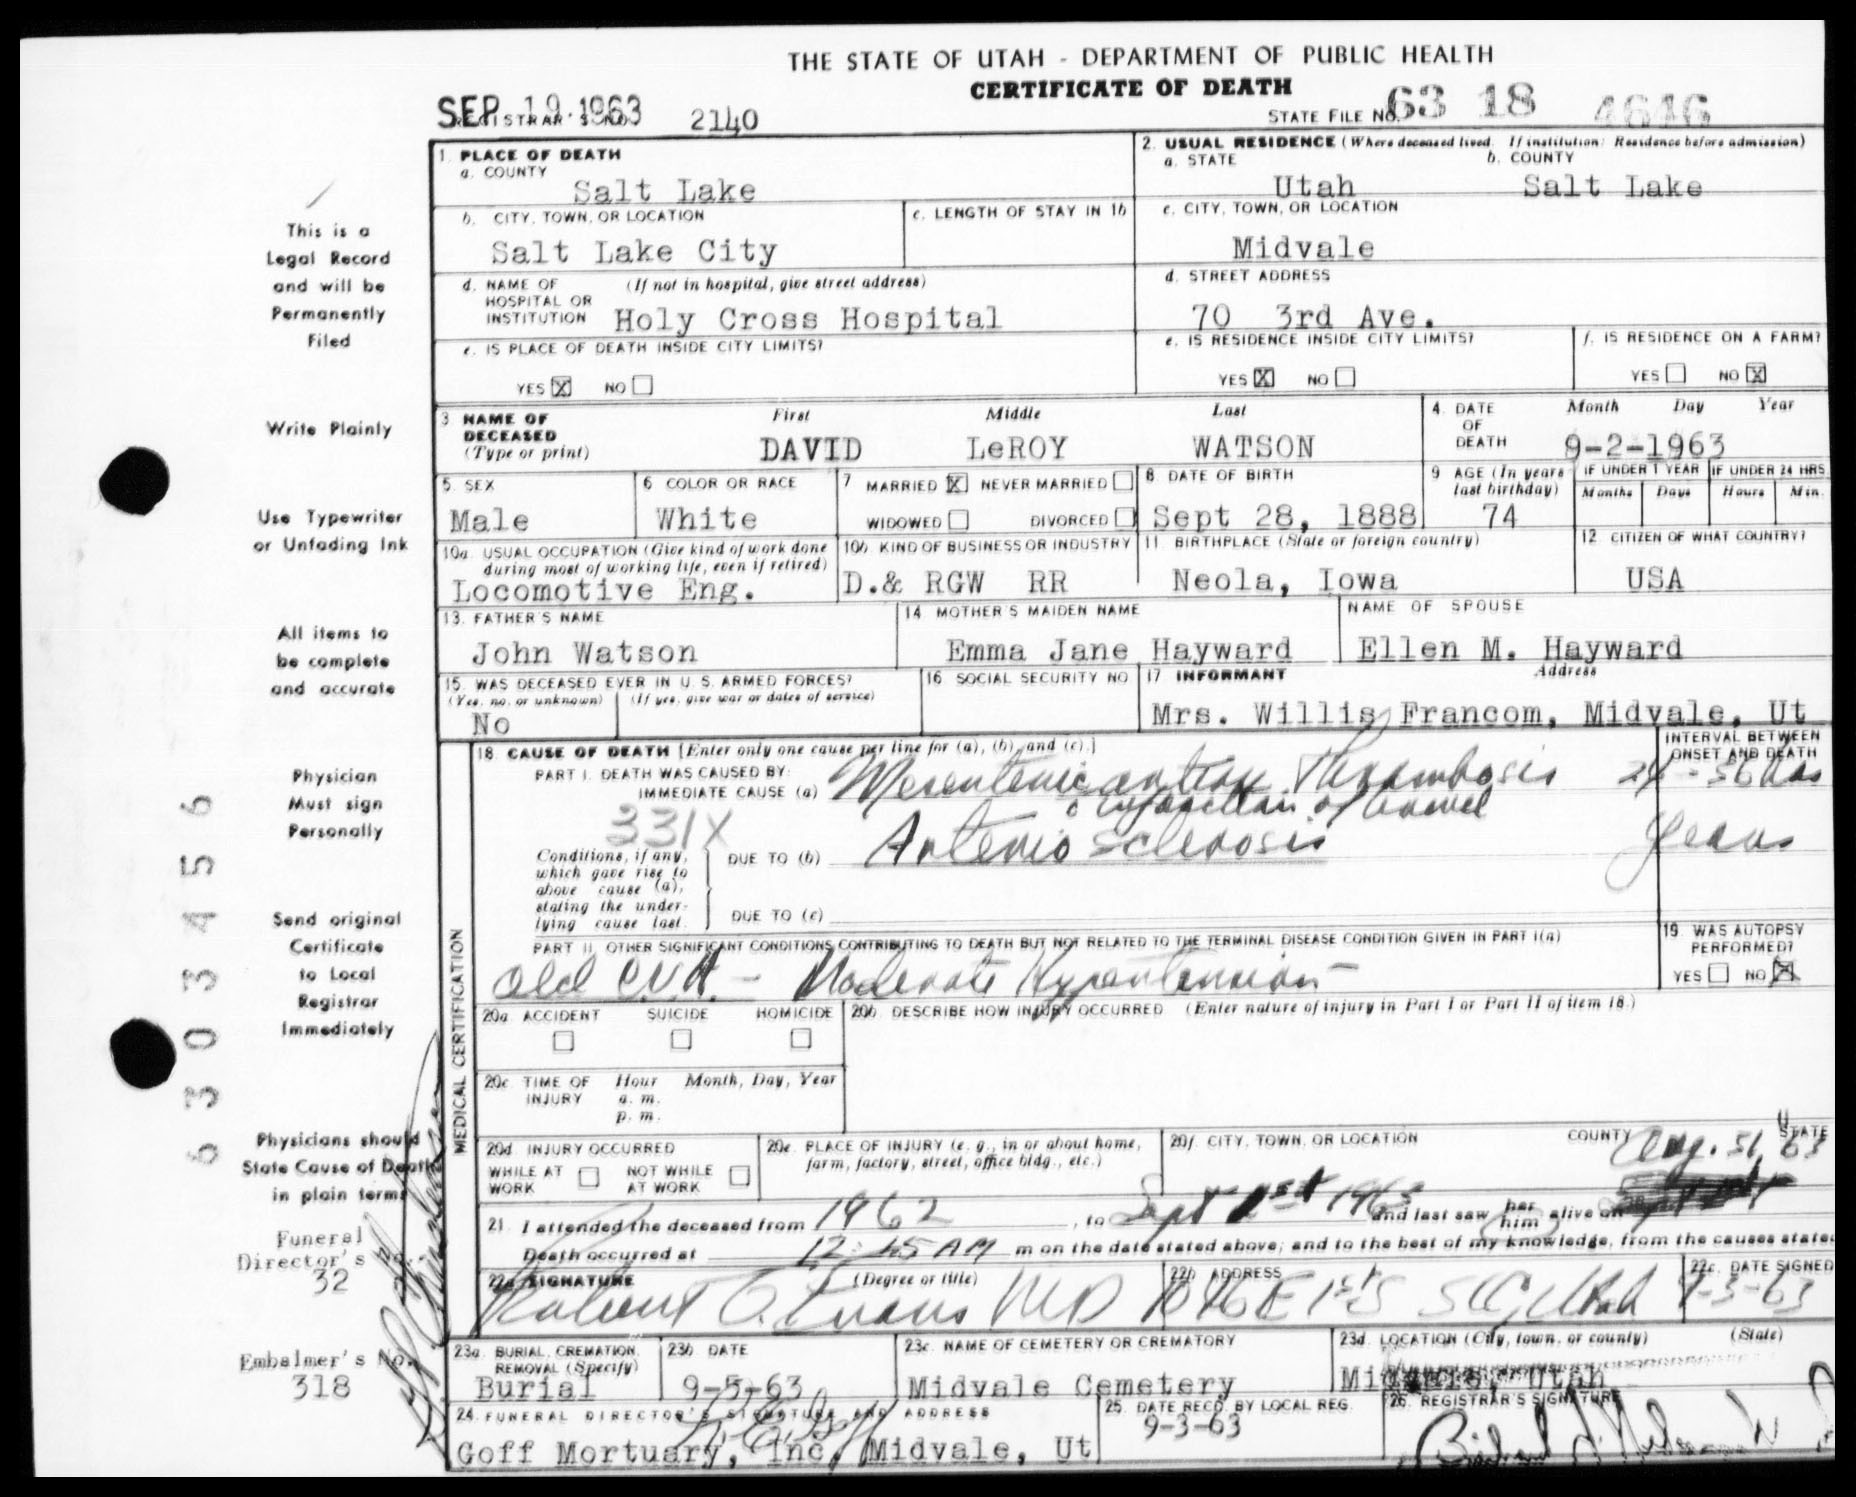 THE STATE OF UTAH - DEPARTMENT OF PUBLIC HEALTH
CERTIFICATE OF DEATH
SEP 19 1963
REGISTRAR'S NO. 2140
STATE FILE NO. 63 18 4646
1. PLACE OF DEATH
a. COUNTY
Salt Lake
2. USUAL RESIDENCE (Where deceased lived. If institution: Residence before admission)
a. STATE b. COUNTY
Utah Salt Lake
b. CITY, TOWN, OR LOCATION
Salt Lake City
c. LENGTH OF STAY IN 1b
c. CITY, TOWN, OR LOCATION
Midvale
d. NAME OF HOSPITAL OR INSTITUTION (If not in hospital, give street address)
Holy Cross Hospital
d. STREET ADDRESS
70 3rd Ave.
e. IS PLACE OF DEATH INSIDE CITY LIMITS?
YES X NO
e. IS RESIDENCE INSIDE CITY LIMITS?
YES X NO
f. IS RESIDENCE ON A FARM?
YES NO X
3 NAME OF DECEASED (Type or print)
First Middle Last
DAVID LeROY WATSON
4. DATE OF DEATH Month Day Year
9-2-1963
5. SEX
Male
6 COLOR OR RACE
White
7 MARRIED X NEVER MARRIED
WIDOWED DIVORCED
8 DATE OF BIRTH
Sept 28, 1888
9 AGE (In years last birthday)
74
IF UNDER 1 YEAR IF UNDER 24 HRS.
Months Days Hours Min.
10a. USUAL OCCUPATION (Give kind of work done during most of working life, even if retired)
Locomotive Eng.
10b. KIND OF BUSINESS OR INDUSTRY
D.& RGW RR
11 BIRTHPLACE (State or foreign country)
Neola, Iowa
12 CITIZEN OF WHAT COUNTRY?
USA
13. FATHER'S NAME
John Watson
14 MOTHER'S MAIDEN NAME
Emma Jane Hayward
NAME OF SPOUSE
Ellen M. Hayward
15. WAS DECEASED EVER IN U. S. ARMED FORCES?
(Yes, no, or unknown) (If yes, give war or dates of service)
No
16 SOCIAL SECURITY NO
17 INFORMANT Address
Mrs. Willis Francom, Midvale, Ut
MEDICAL CERTIFICATION
18. CAUSE OF DEATH [Enter only one cause per line for (a), (b), and (c).]
INTERVAL BETWEEN ONSET AND DEATH
PART I. DEATH WAS CAUSED BY:
IMMEDIATE CAUSE (a) Mesenteric artery Thrombosis
of bowel
331X
Conditions, if any, which gave rise to above cause (a), stating the underlying cause last.
DUE TO (b) Arterio sclerosis Years
DUE TO (c)
PART II. OTHER SIGNIFICANT CONDITIONS CONTRIBUTING TO DEATH BUT NOT RELATED TO THE TERMINAL DISEASE CONDITION GIVEN IN PART I(a)
Old C.V.A. - Moderate Hypertension -
19. WAS AUTOPSY PERFORMED?
YES NO X
20a. ACCIDENT SUICIDE HOMICIDE
20b. DESCRIBE HOW INJURY OCCURRED (Enter nature of injury in Part I or Part II of item 18.)
20c TIME OF INJURY Hour Month, Day, Year
a. m.
p. m.
20d. INJURY OCCURRED
WHILE AT WORK NOT WHILE AT WORK
20e. PLACE OF INJURY (e. g., in or about home, farm, factory, street, office bldg., etc.)
20f. CITY, TOWN, OR LOCATION COUNTY STATE
Aug. 31, 63
21. I attended the deceased from 1962, to Sept 1st 1963 and last saw her him alive on
Death occurred at 12:45 AM m on the date stated above; and to the best of my knowledge, from the causes stated
22a. SIGNATURE (Degree or title)
Robert O. Evans MD
22b. ADDRESS
22c. DATE SIGNED
9-3-63
23a. BURIAL, CREMATION, REMOVAL (Specify)
Burial
23b DATE
9-5-63
23c. NAME OF CEMETERY OR CREMATORY
Midvale Cemetery
23d. LOCATION (City, town, or county) (State)
Utah
24. FUNERAL DIRECTOR'S SIGNATURE AND ADDRESS
Goff Mortuary, Inc, Midvale, Ut
25. DATE RECD. BY LOCAL REG.
9-3-63
26. REGISTRAR'S SIGNATURE
This is a
Legal Record
and will be
Permanently
Filed
Write Plainly
Use Typewriter
or Unfading Ink
All items to
be complete
and accurate
Physician
Must sign
Personally
Send original
Certificate
to Local
Registrar
Immediately
Physicians should
State Cause of Death
in plain terms
Funeral
Director's No.
32
Embalmer's No.
318
6303456